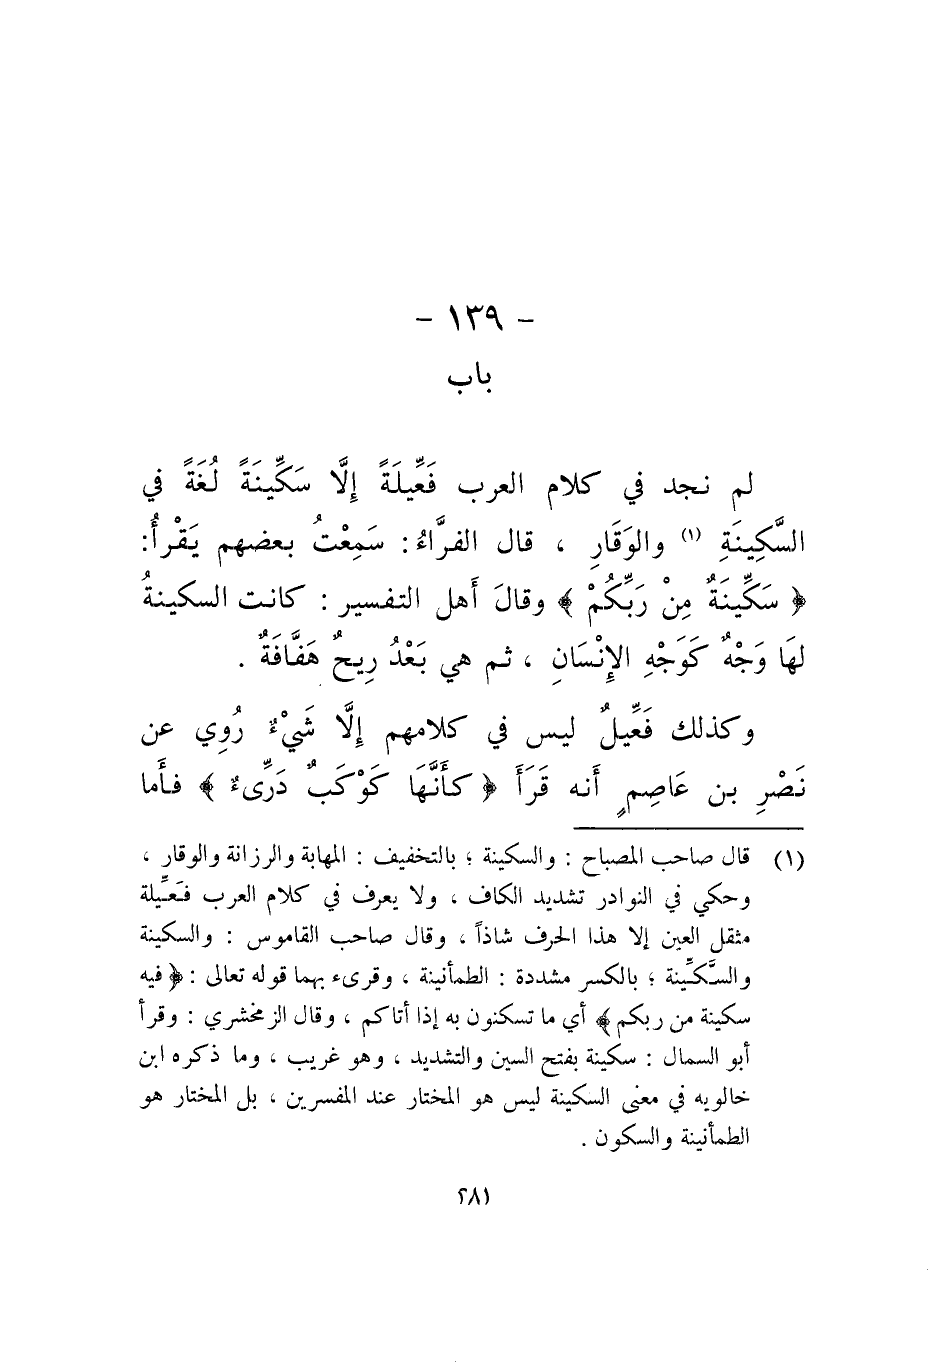 - ١٣٩ -
باب
لم نجد في كلام العرب فَعِّيلَةً إِلَّا سَكِّينَةً لُغَةً في
السَّكِينَةِ (١) والوَقَارِ ، قال الفرَّاءُ : سَمِعْتُ بعضهم يَقْرأُ:
﴿ سَكِّينَةٌ مِنْ رَبِّكُمْ ﴾ وقالَ أَهل التفسير : كانت السكينةُ
لهَا وَجْهٌ كَوَجْهِ الإِنْسَانِ ، ثم هي بَعْدُ رِيحٌ هَفَّافَةٌ .
وكذلك فَعِّيلٌ ليس في كلامهم إِلَّا شَيْءٌ رُوِي عن
نَصْرِ بن عَاصِمٍ أَنه قَرَأَ ﴿ كأَنَّهَا كَوْكَبٌ دَرِّىءٌ ﴾ فأَما
(١) قال صاحب المصباح : والسكينة ؛ بالتخفيف : المهابة والرزانة والوقار ،
وحكي في النوادر تشديد الكاف ، ولا يعرف في كلام العرب فَعِّيلة
مثقل العين إلا هذا الحرف شاذاً ، وقال صاحب القاموس : والسكينة
والسِّكِّينة ؛ بالكسر مشددة : الطمأنينة ، وقرىء بهما قوله تعالى : ﴿ فيه
سكينة من ربكم ﴾ أي ما تسكنون به إذا أتاكم ، وقال الزمخشري : وقرأ
أبو السمال : سكينة بفتح السين والتشديد ، وهو غريب ، وما ذكره ابن
خالويه في معنى السكينة ليس هو المختار عند المفسرين ، بل المختار هو
الطمأنينة والسكون .
٢٨١